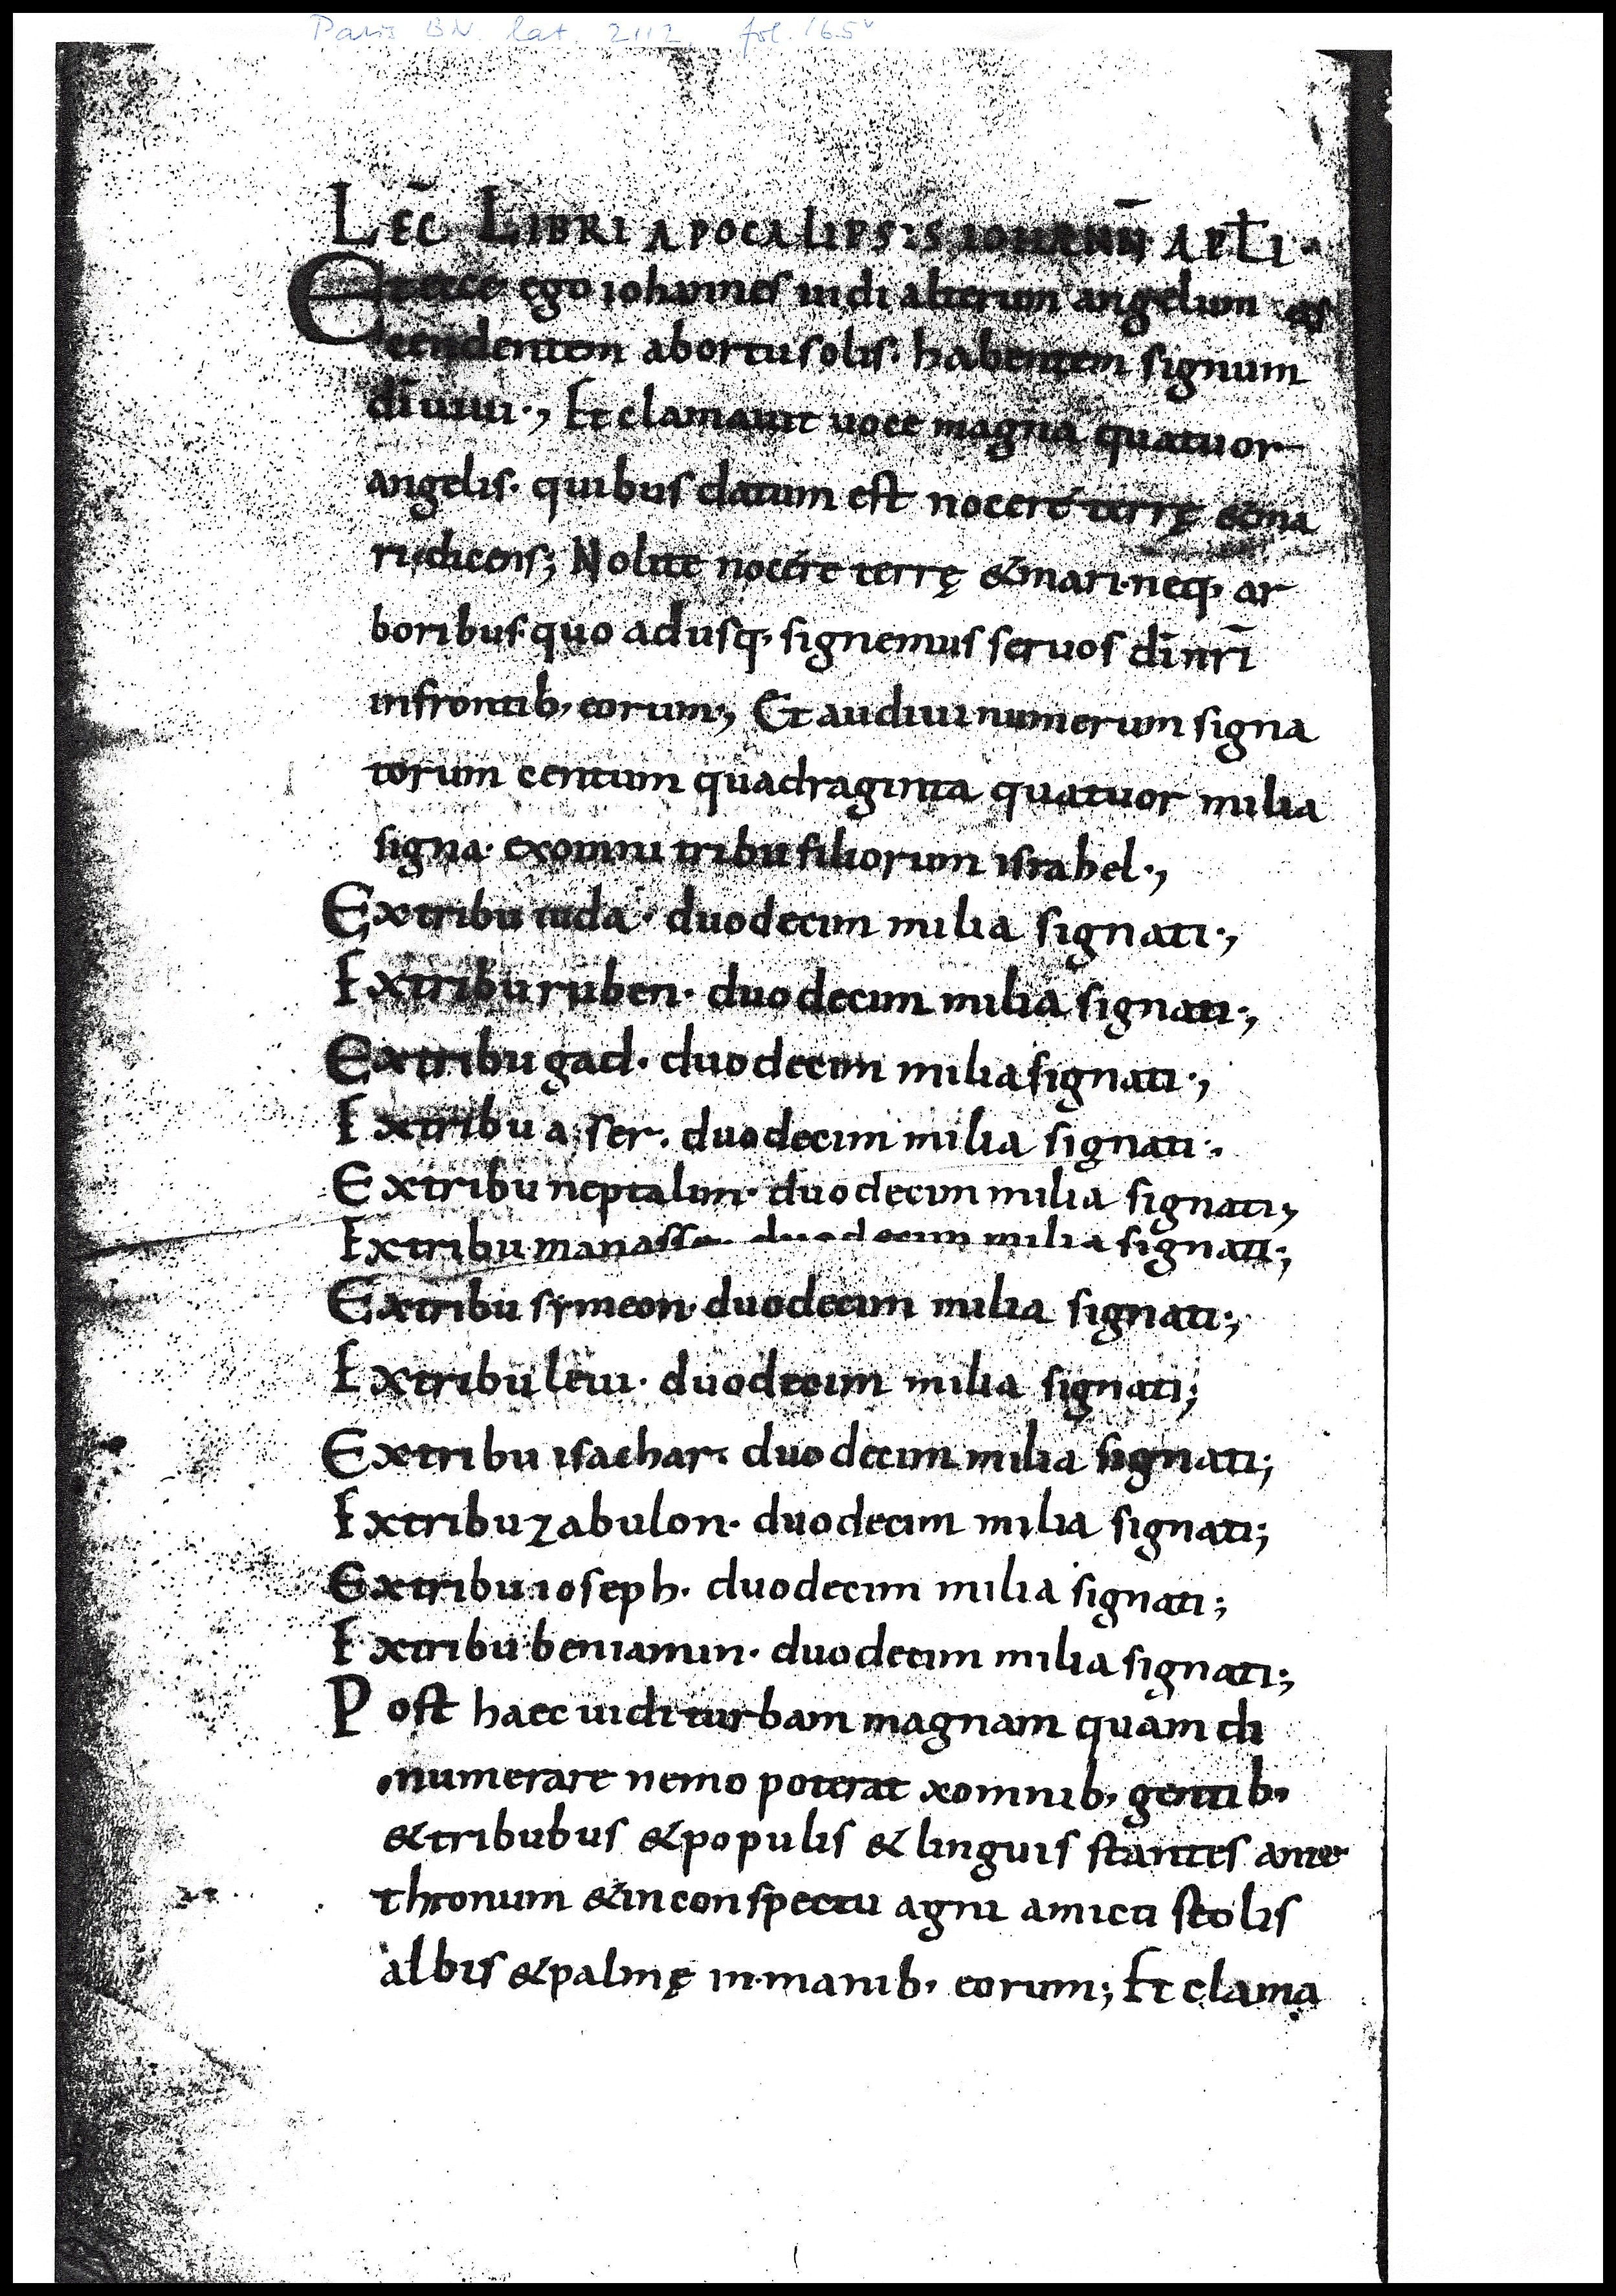 Paris BN. lat. 2112, fol. 165v
LEC̄ LIBRI APOCALIPSIS IOHANN̄ APƚI·
Et ecce ego iohannes uidi alterum angelum as
cendentem abortusolis· habentem signum
dī uiui·, Et clamauit uoce magna quatuor
angelis· quibus datum est nocere terrę &ma
ridicens; Nolite nocere terrę &mari·neq· ar
boribus·quo adusq, signemus seruos dī nrī
infrontib, eorum·, Et audiui numerum signa
torum centum quadraginta quatuor milia
signa· exomni tribu filiorum israhel·,
Extribu iuda· duodecim milia signati·,
Extribu ruben· duodecim milia signati·,
Extribu gad· duodecim milia signati·,
Extribu aser· duodecim milia signati·.
Extribu neptalim· duodecim milia signati,
Extribu manasse· duodecim milia signati;
Extribu symeon· duodecim milia signati·,
Extribu leui· duodecim milia signati;
Extribu isachar· duodecim milia signati;
Extribu zabulon· duodecim milia signati;
Extribu ioseph· duodecim milia signati;
Extribu beniamin· duodecim milia signati;
Post haec uidi turbam magnam quam di
numerare nemo poterat xomnib, gentib,
&tribubus &populis & linguis stantes ante
thronum &inconspectu agni amicti stolis
albis &palmę in·manib, eorum; Et clama